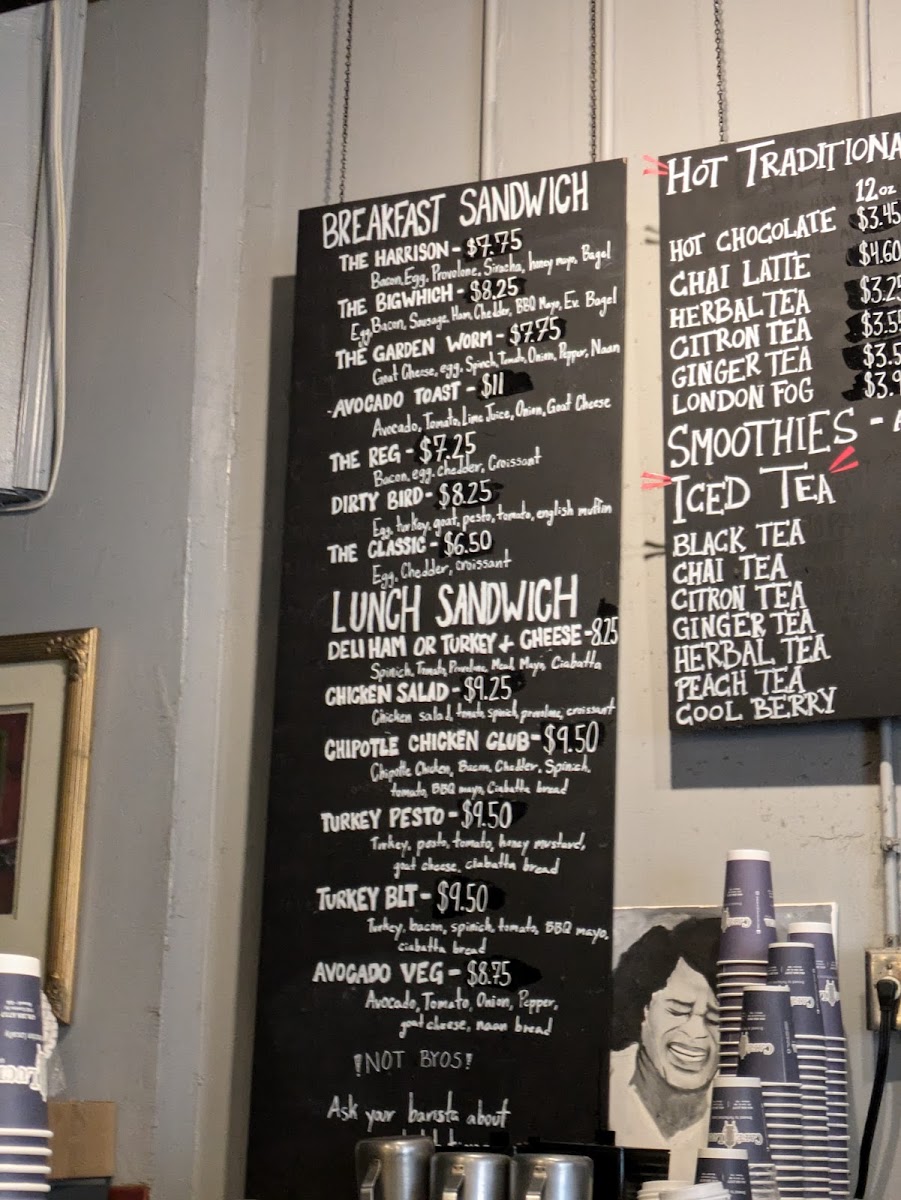 BREAKFAST SANDWICH
THE HARRISON - $7.75
Bacon, Egg, Provolone, Siracha, honey mayo, Bagel
THE BIGWHICH - $8.25
Egg, Bacon, Sausage, Ham, Chedder, BBQ Mayo, Ev. Bagel
THE GARDEN WORM - $7.75
Goat Cheese, egg, Spinch, Tomato, Onion, Pepper, Naan
AVOCADO TOAST - $11
Avocado, Tomato, Lime Juice, Onion, Goat Cheese
THE REG - $7.25
Bacon, egg, chedder, Croissant
DIRTY BIRD - $8.25
Egg, turkey, goat, pesto, tomato, english muffin
THE CLASSIC - $6.50
Egg, Chedder, croissant
LUNCH SANDWICH
DELI HAM OR TURKEY + CHEESE - 8.25
Spinich, Tomato, Provolone, Meat, Mayo, Ciabatta
CHICKEN SALAD - $9.25
Chicken salad, tomato, spinich, provolone, croissant
CHIPOTLE CHICKEN CLUB - $9.50
Chipotle Chicken, Bacon, Chedder, Spinich,
tomato, BBQ mayo, Ciabatta bread
TURKEY PESTO - $9.50
Turkey, pesto, tomato, honey mustard,
goat cheese, ciabatta bread
TURKEY BLT - $9.50
Turkey, bacon, spinich, tomato, BBQ mayo,
ciabatta bread
AVOCADO VEG - $8.75
Avocado, Tomato, Onion, Pepper,
goat cheese, naan bread
!NOT BROS!
Ask your barista about
HOT TRADITIONA
12oz
HOT CHOCOLATE $3.45
CHAI LATTE $4.60
HERBAL TEA $3.25
CITRON TEA $3.55
GINGER TEA $3.5
LONDON FOG $3.9
SMOOTHIES -
ICED TEA
BLACK TEA
CHAI TEA
CITRON TEA
GINGER TEA
HERBAL TEA
PEACH TEA
COOL BERRY